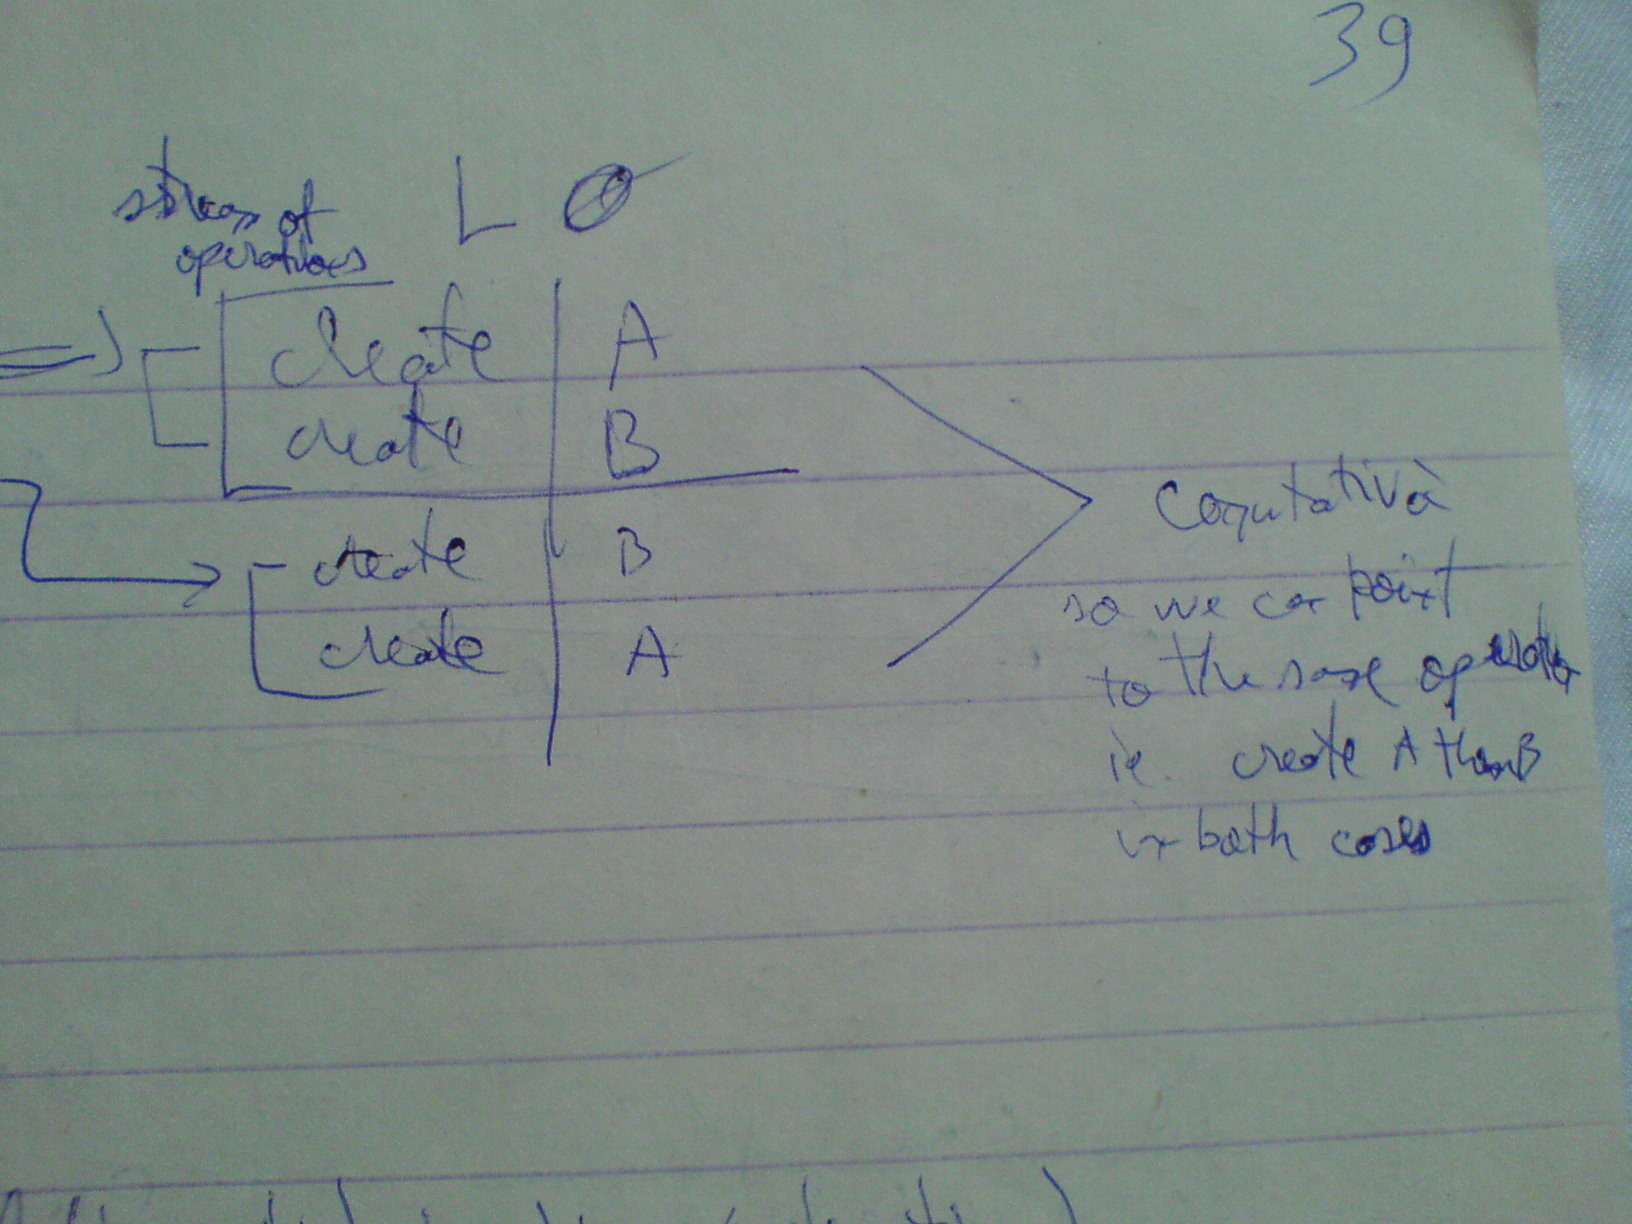 39
stream of
operations
L O
create A
create B
create B
create A
Comutativà
so we can point
to the same operation
ie. create A then B
in both cases